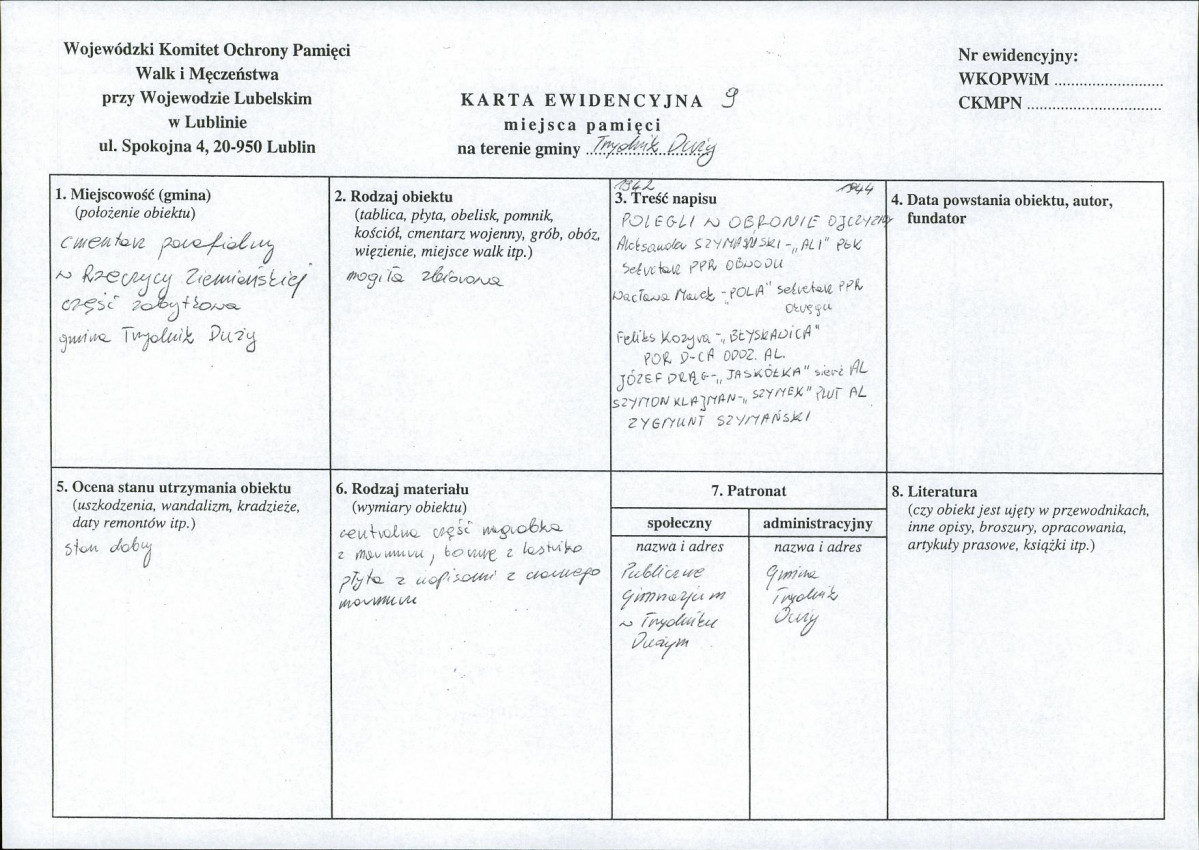 Wojewódzki Komitet Ochrony Pamięci
Walk i Męczeństwa
przy Wojewodzie Lubelskim
w Lublinie
ul. Spokojna 4, 20-950 Lublin
KARTA EWIDENCYJNA 9
miejsca pamięci
na terenie gminy Trzydnik Duży
Nr ewidencyjny:
WKOPWiM
CKMPN
1. Miejscowość (gmina)
(położenie obiektu)
cmentarz parafialny
w Rzeczycy Ziemiańskiej
część zabytkowa
gmina Trzydnik Duży
2. Rodzaj obiektu
(tablica, płyta, obelisk, pomnik,
kościół, cmentarz wojenny, grób, obóz,
więzienie, miejsce walk itp.)
mogiła zbiorowa
1942 1944
3. Treść napisu
POLEGLI W OBRONIE OJCZYZNY
Aleksander SZYMAŃSKI - „ALI"
Sekretarz PPR OBWODU
Wacława Marek - „POLA" sekretarz PPR
Okręgu
Feliks Kozyra - „BŁYSKAWICA"
POR D-CA ODDZ. AL.
JÓZEF DRĄG - „JASKÓŁKA" sierż AL
SZYMON KLAJMAN - „SZYMEK" PLUT AL
ZYGMUNT SZYMAŃSKI
4. Data powstania obiektu, autor,
fundator
5. Ocena stanu utrzymania obiektu
(uszkodzenia, wandalizm, kradzieże,
daty remontów itp.)
stan dobry
6. Rodzaj materiału
(wymiary obiektu)
centralna część nagrobka
z marmuru, z lastriko
płyta z napisami z czarnego
marmuru
7. Patronat
społeczny
nazwa i adres
Publiczne
Gimnazjum
w Trzydniku
Dużym
administracyjny
nazwa i adres
Gmina
Trzydnik
Duży
8. Literatura
(czy obiekt jest ujęty w przewodnikach,
inne opisy, broszury, opracowania,
artykuły prasowe, książki itp.)